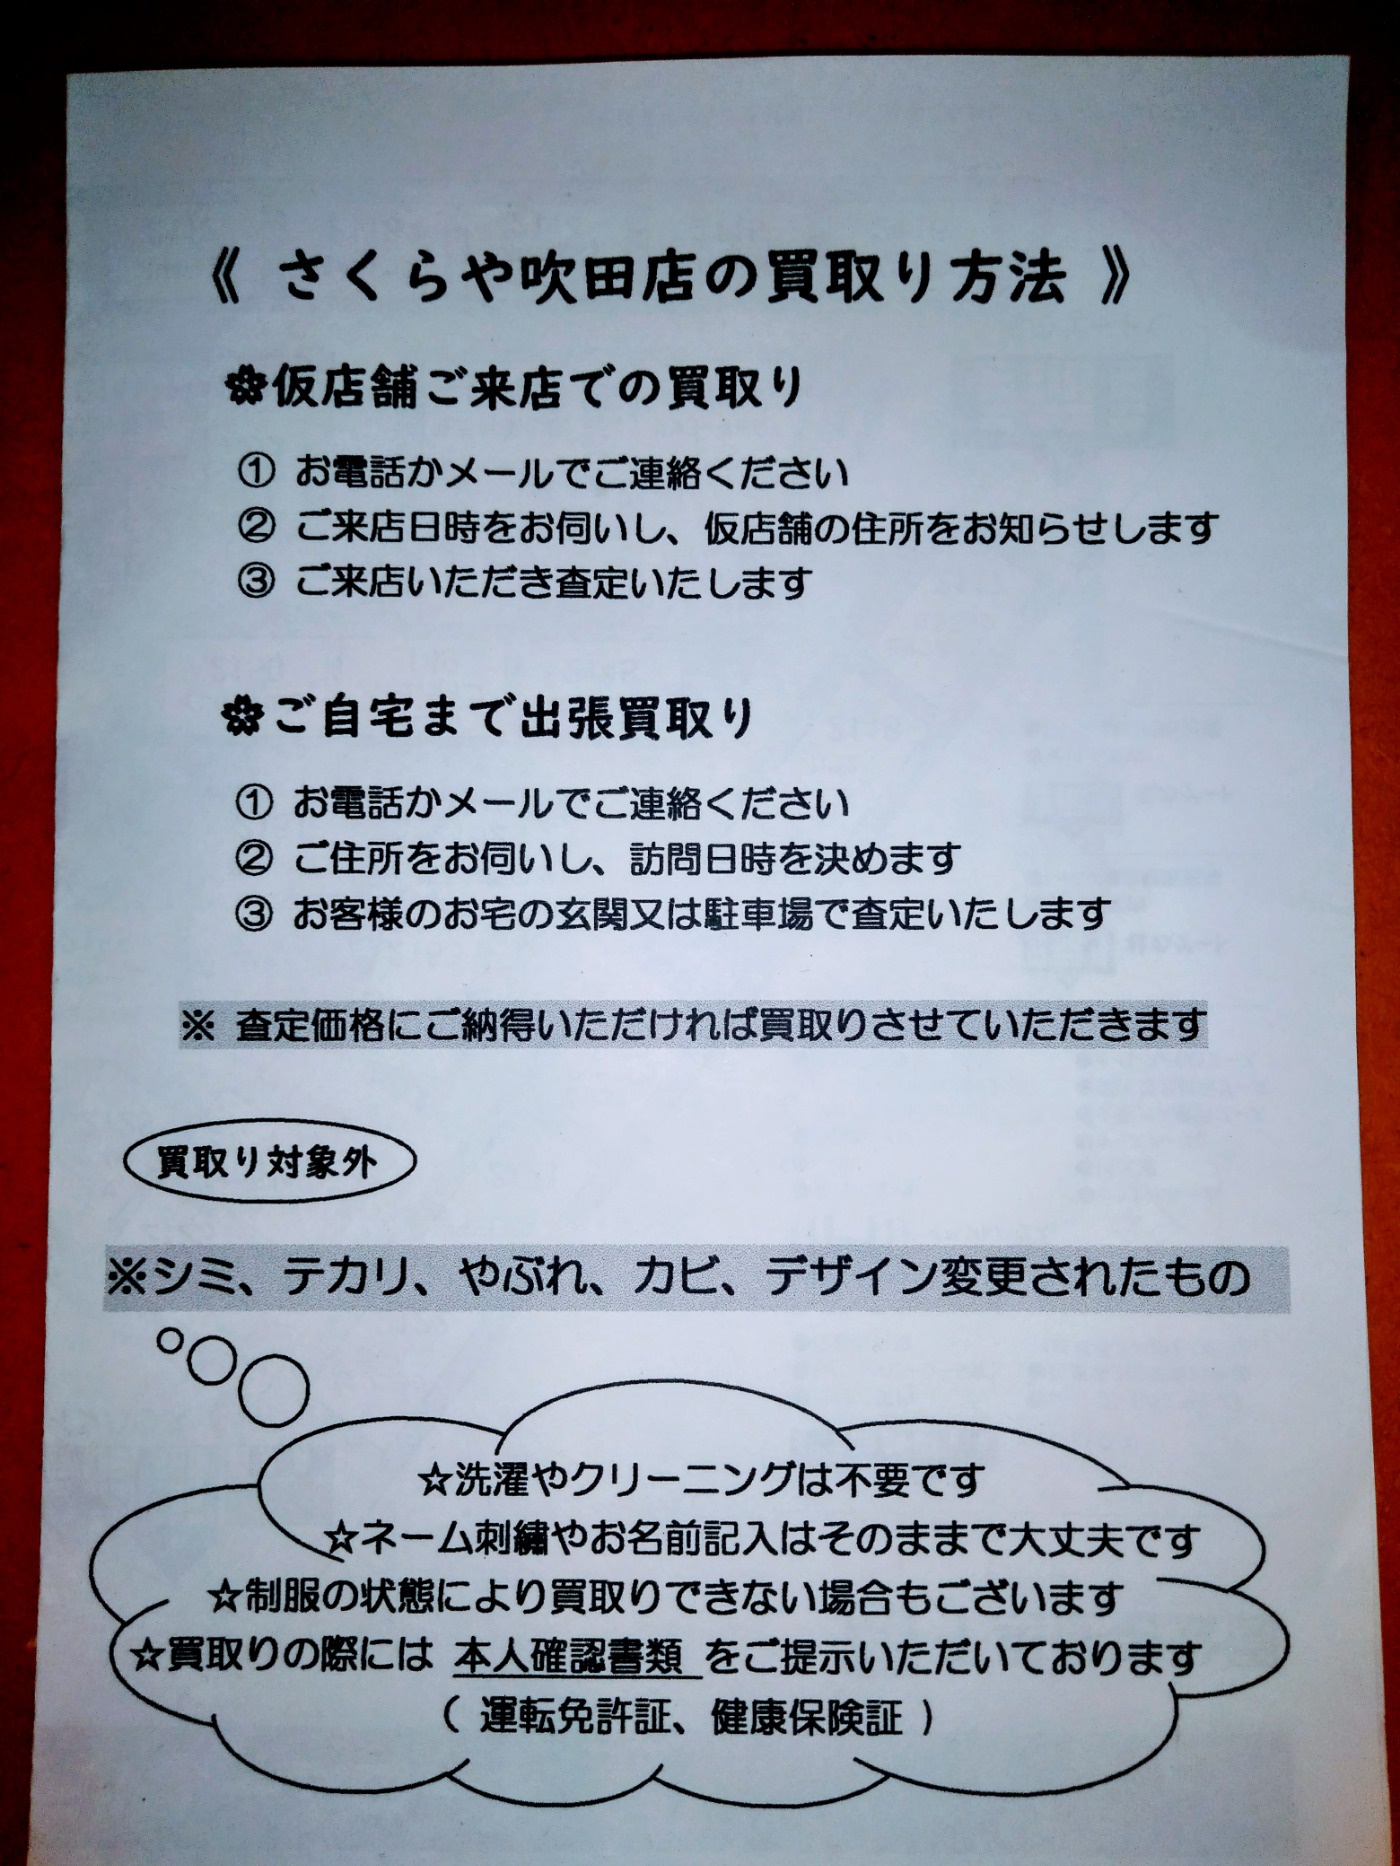 《 さくらや吹田店の買取り方法 》
❁仮店舗ご来店での買取り
① お電話かメールでご連絡ください
② ご来店日時をお伺いし、仮店舗の住所をお知らせします
③ ご来店いただき査定いたします
❁ご自宅まで出張買取り
① お電話かメールでご連絡ください
② ご住所をお伺いし、訪問日時を決めます
③ お客様のお宅の玄関又は駐車場で査定いたします
※ 査定価格にご納得いただければ買取りさせていただきます
買取り対象外
※シミ、テカリ、やぶれ、カビ、デザイン変更されたもの
☆洗濯やクリーニングは不要です
☆ネーム刺繍やお名前記入はそのままで大丈夫です
☆制服の状態により買取りできない場合もございます
☆買取りの際には 本人確認書類 をご提示いただいております
( 運転免許証、健康保険証 )